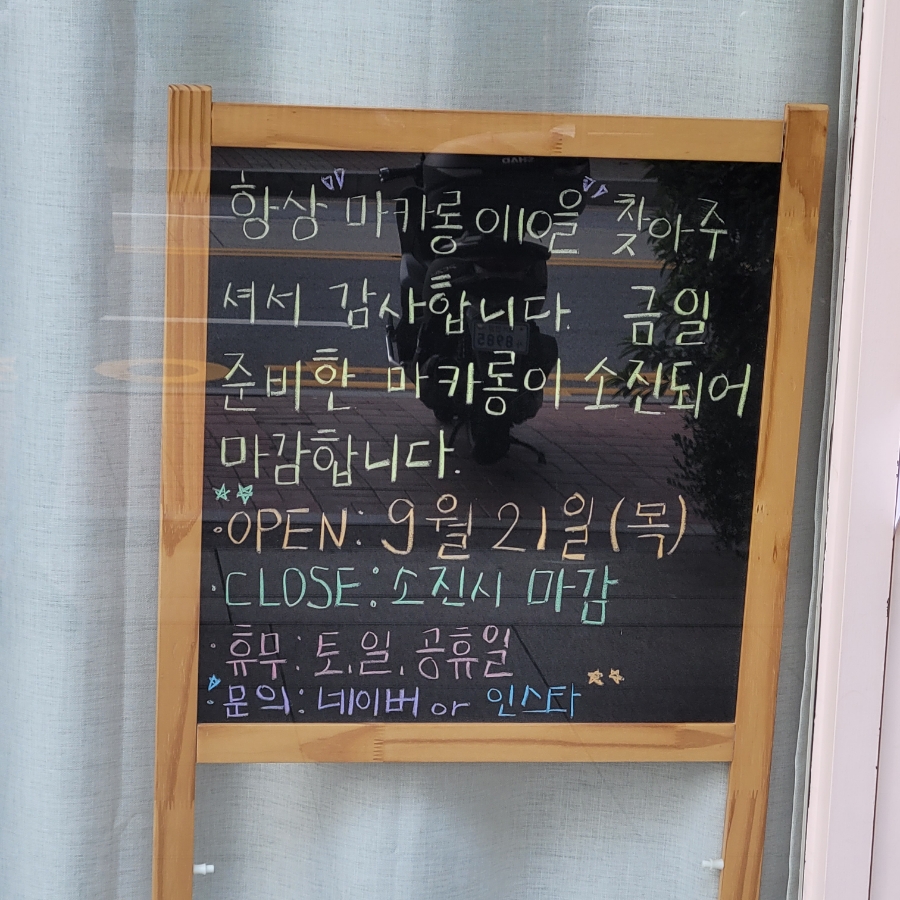 항상 "마카롱 이10을" 찾아주
셔서 감사합니다. 금일
준비한 마카롱이 소진되어
마감합니다.
·OPEN: 9월 21일 (목)
·CLOSE: 소진시 마감
·휴무: 토,일,공휴일
·문의: 네이버 or 인스타